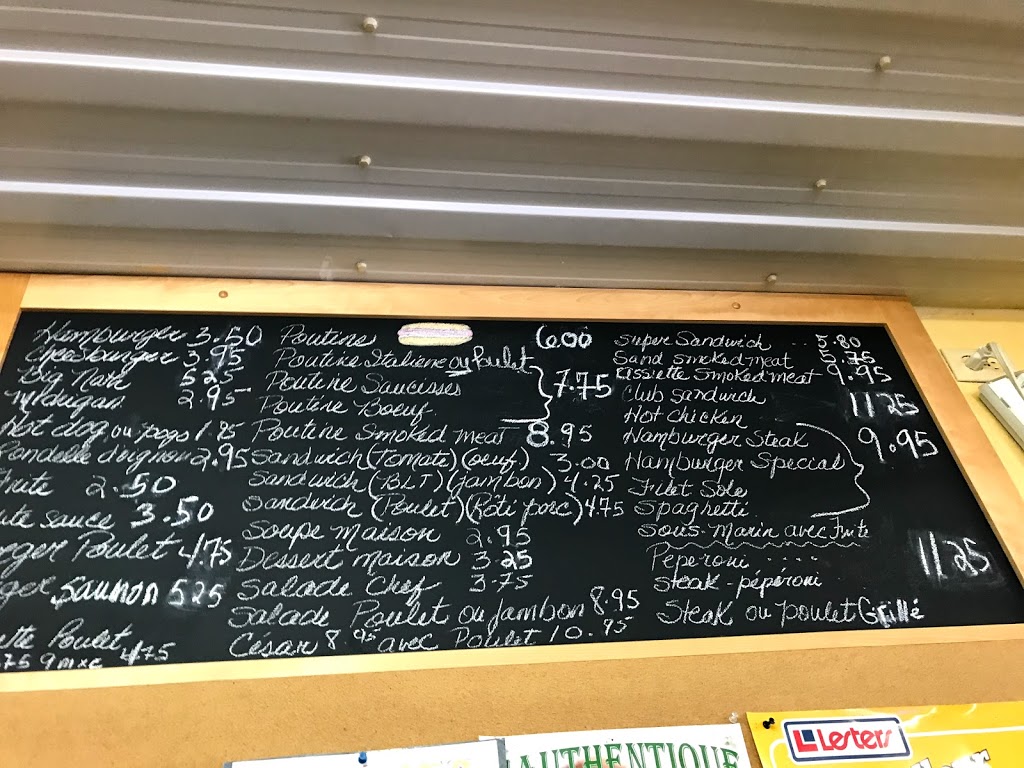 Hamburger 3.50
Cheesburger 3.95
Big Nath 5.25
Michigan 2.95
Hot dog ou pogo 1.95
Rondelle d'oignon 2.95
Frite 2.50
sauce 3.50
Poulet 4.75
Saumon 5.25
Poulet 4.75
Poutine 6.00
Poutine Italiene ou Poulet
Poutine Saucisses 7.75
Poutine Boeuf
Poutine Smoked meat 8.95
Sandwich (Tomate) (oeuf) 3.00
Sandwich (BLT) (jambon) 4.25
Sandwich (Poulet) (Rôti porc) 4.75
Soupe maison 2.95
Dessert maison 3.25
Salade Chef 3.75
Salade Poulet ou Jambon 8.95
César 8.95 avec Poulet 10.95
Super Sandwich .. 5.80
Sand smoked meat 5.75
Assiette Smoked meat 9.95
Club Sandwich 11.25
Hot chicken
Hamburger Steak 9.95
Hamburger Special
Filet Sole
Spaghetti
Sous-Marin avec Frite
Peperoni 11.25
Steak - péperoni
Steak ou poulet Grillé
AUTHENTIQUE
Lesters